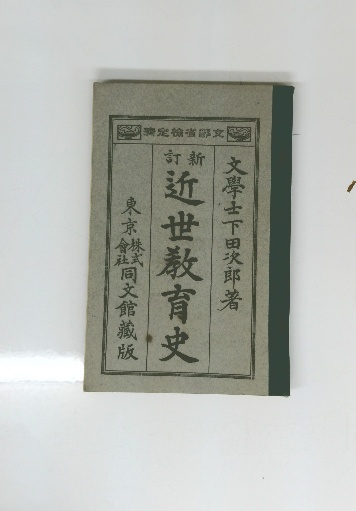 文部省檢定濟
文學士下田次郎著
新訂
近世教育史
東京株式會社同文館藏版